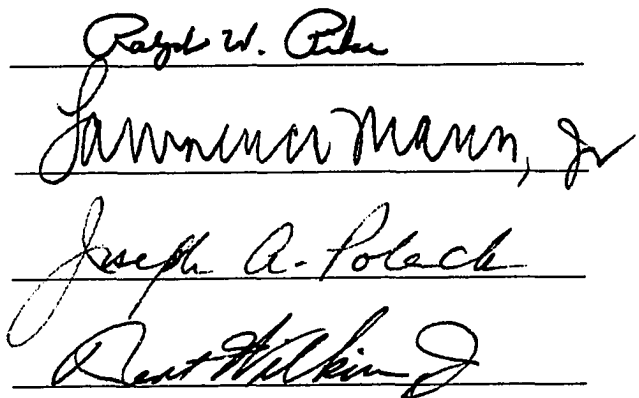 Ralph W. Pike
Lawrence Mann, Jr
Joseph A. Polack
Bert Wilkins Jr